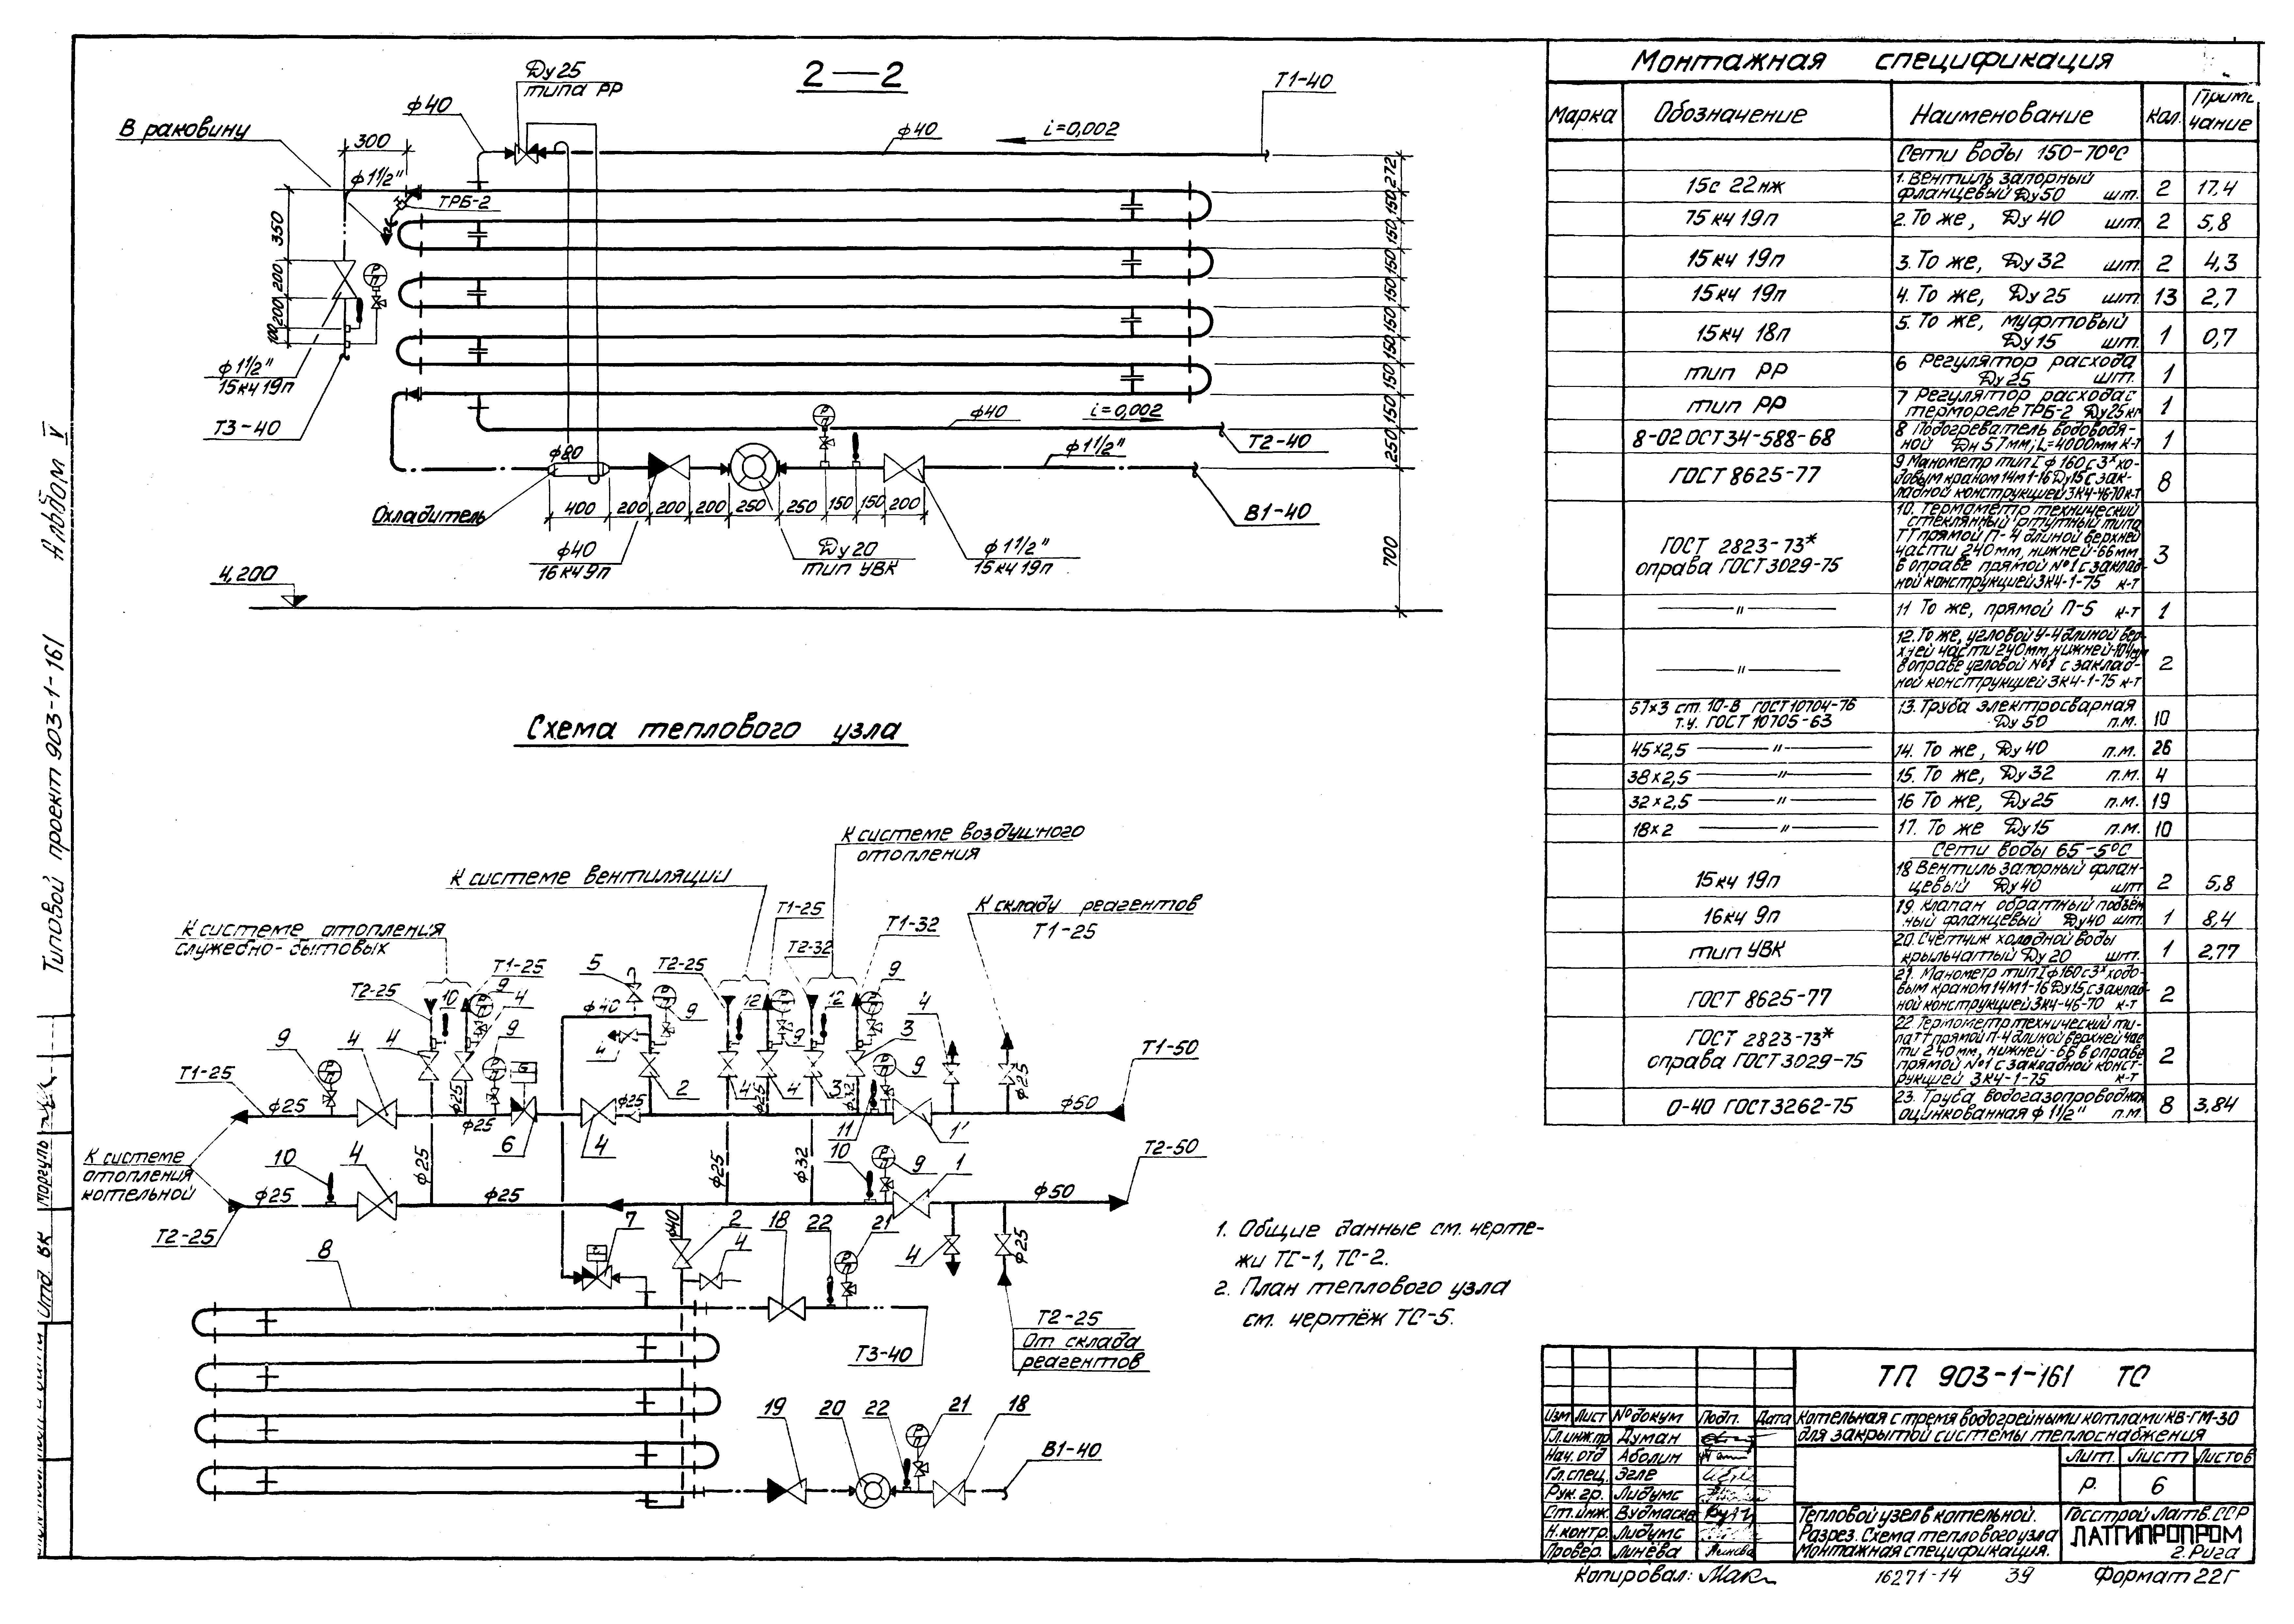 2—2
Ду25
типа РР
ф40
В раковину
300
ф1½"
ТРБ-2
350
200
200
100
ф1½"
15кч19п
Т3-40
Т1-40
ф40
i=0,002
272
150
150
150
150
150
150
150
150
250
700
ф40
i=0,002
Т2-40
ф1½"
В1-40
ф80
Охладитель
400
200
200
200
250
250
150
150
200
ф40
16кч9п
Ду20
тип УВК
ф1½"
15кч19п
4,200
Схема теплового узла
К системе воздушного
отопления
К системе вентиляции
К системе отопления
служебно-бытовых
К складу реагентов
Т1-25
Т1-25
Т2-32
Т1-32
Т2-25
Т1-25
Т2-25
Т1-50
Т2-50
Т1-25
К системе
отопления
котельной
Т2-25
ф25
ф25
ф25
ф40
ф25
ф32
ф50
ф50
Т3-40
Т2-25
От склада
реагентов
В1-40
1. Общие данные см. черте-
жи ТС-1, ТС-2.
2. План теплового узла
см. чертёж ТС-5.
Монтажная спецификация
Марка Обозначение Наименование Кол. Приме
чание
Сети воды 150-70°С
15с 22нж 1. Вентиль запорный
фланцевый Ду50 шт. 2 17,4
75кч 19п 2. То же, Ду 40 шт. 2 5,8
15кч 19п 3. То же, Ду 32 шт. 2 4,3
15кч 19п 4. То же, Ду 25 шт. 13 2,7
15кч 18п 5. То же, муфтовый
Ду15 шт. 1 0,7
тип РР 6 Регулятор расхода
Ду25 шт. 1
тип РР 7 Регулятор расхода с
термореле ТРБ-2 Ду25 кг 1
8-02 ОСТ34-588-68 8 Подогреватель водоводя-
ной Дн 57мм; L=4000мм к-т 1
ГОСТ 8625-77 9. Манометр тип I ф160 с 3х хо-
довым краном 14М1-16 Ду15 с зак-
ладной конструкцией ЗК4-46-70 к-т 8
ГОСТ 2823-73*
оправа ГОСТ 3029-75 10. Термометр технический
стеклянный ртутный типа
ТТ прямой П-4 длиной верхней
части 240мм, нижней-66мм
в оправе прямой №1 с заклад-
ной конструкцией ЗК4-1-75 к-т 3
—"— 11 То же, прямой П-5 к-т 1
—"— 12. То же, угловой У-4 длиной вер-
хней части 240мм, нижней-104мм
в оправе угловой №1 с заклад-
ной конструкцией ЗК4-1-75 к-т 2
57×3 ст. 10-В ГОСТ10704-76
т.у. ГОСТ 10705-63 13. Труба электросварная
Ду 50 п.м. 10
45×2,5 —"— 14. То же, Ду40 п.м. 26
38×2,5 —"— 15. То же, Ду32 п.м. 4
32×2,5 —"— 16 То же, Ду25 п.м. 19
18×2 —"— 17. То же Ду15 п.м. 10
Сети воды 65-5°С
15кч 19п 18 Вентиль запорный флан-
цевый Ду40 шт 2 5,8
16кч 9п 19. Клапан обратный подъём-
ный фланцевый Ду40 шт. 1 8,4
тип УВК 20. Счётчик холодной воды
крыльчатый Ду 20 шт. 1 2,77
ГОСТ 8625-77 21. Манометр тип I ф160 с 3х ходо-
вым краном 14М1-16 Ду15, с заклад-
ной конструкцией ЗК4-46-70 к-т 2
ГОСТ 2823-73*
оправа ГОСТ 3029-75 22 Термометр технический ти-
па ТТ прямой П-4 длиной верхней час
ти 240мм, нижней-66 в оправе
прямой №1 с закладной конст-
рукцией ЗК4-1-75 к-т 2
0-40 ГОСТ 3262-75 23. Труба водогазопроводная
оцинкованная ф1½" п.м. 8 3,84
ТП 903-1-161 ТС
Изм Лист №докум Подп. Дата
Гл.инж.пр Думан
Нач. отд Аболин
Гл.спец. Эгле
Рук. гр. Лидумс
Ст. инж. Вудмаска
Н.контр. Лидумс
Провер. Линёва
Котельная с тремя водогрейными котлами КВ-ГМ-30
для закрытой системы теплоснабжения
Лит. Лист Листов
Р. 6
Тепловой узел в котельной.
Разрез. Схема теплового узла
Монтажная спецификация.
Госстрой Латв.ССР
ЛАТГИПРОПРОМ
г. Рига
Копировал: 16271-14 39 Формат 22Г
Типовой проект 903-1-161 Альбом V